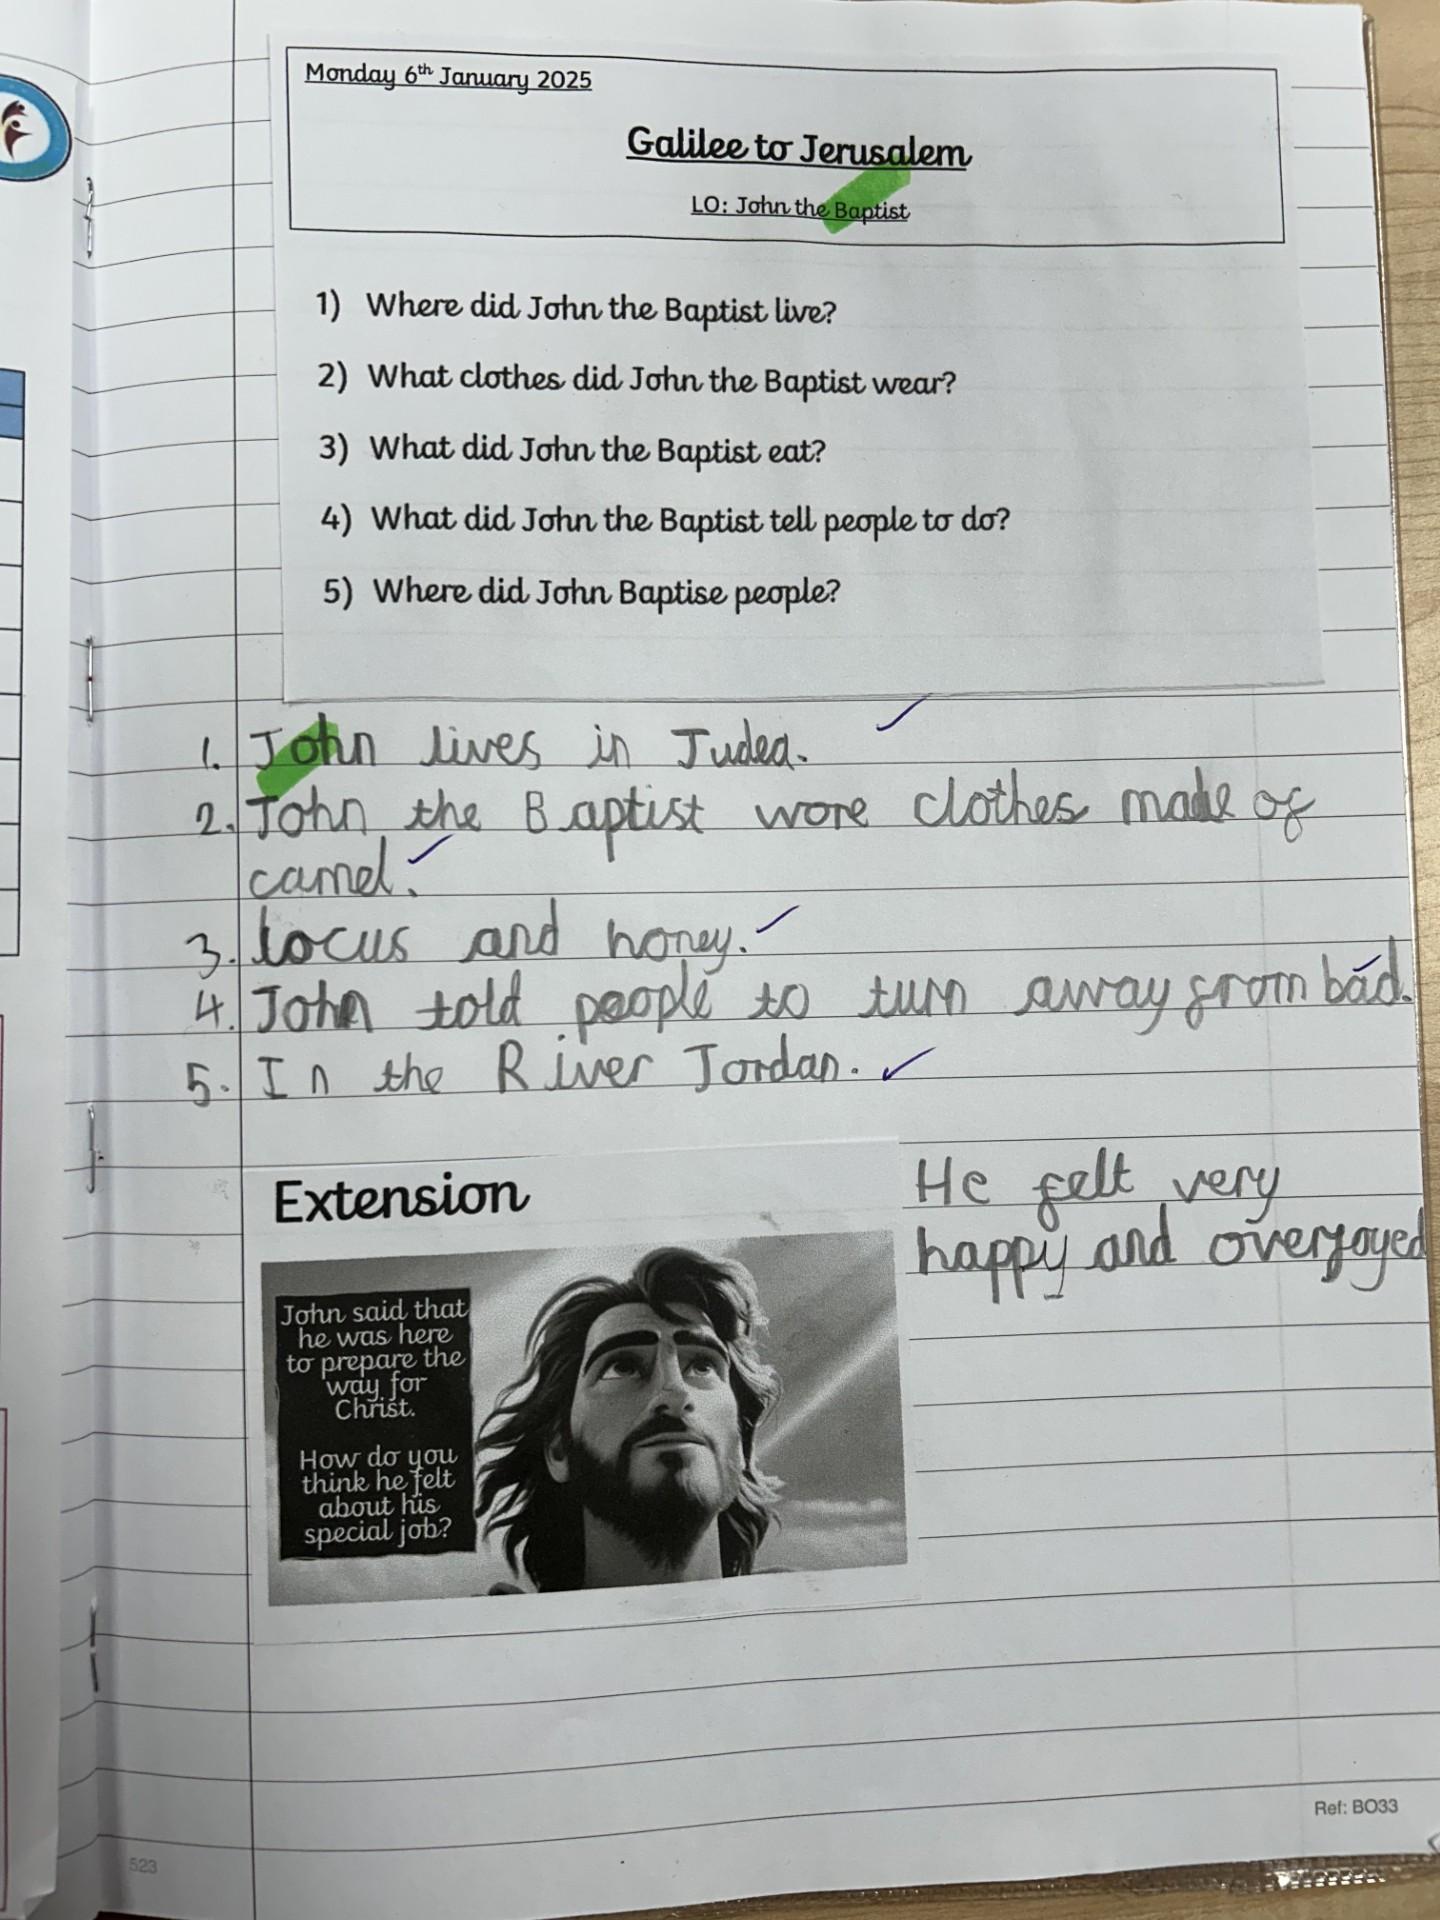 Monday 6th January 2025
Galilee to Jerusalem
LO: John the Baptist
1) Where did John the Baptist live?
2) What clothes did John the Baptist wear?
3) What did John the Baptist eat?
4) What did John the Baptist tell people to do?
5) Where did John Baptise people?
1. John lives in Judea.
2. John the Baptist wore clothes made of
camel.
3. locus and honey.
4. John told people to turn away from bad.
5. In the River Jordan.
Extension
John said that
he was here
to prepare the
way for
Christ.
How do you
think he felt
about his
special job?
He felt very
happy and overjoyed
Ref: BO33
523